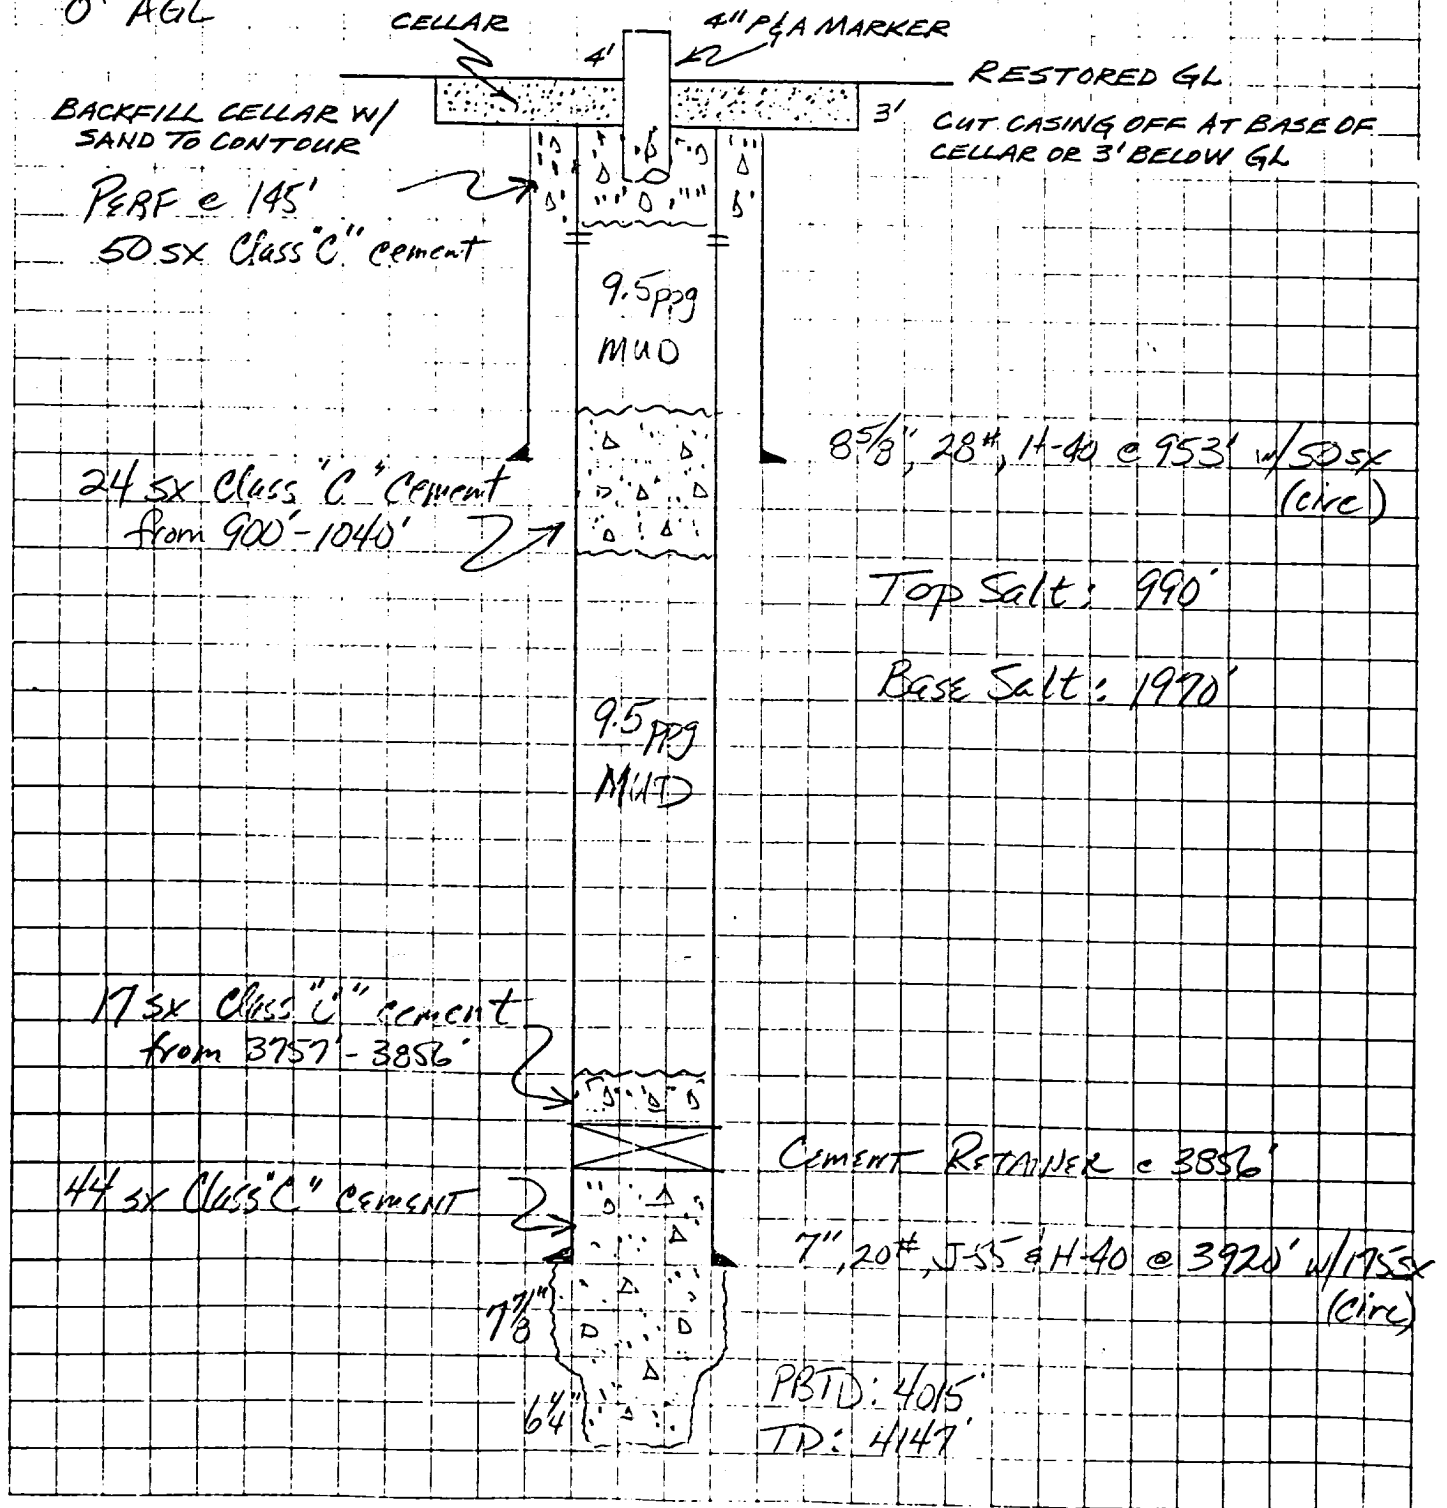 0' AGL
CELLAR
4" P&A MARKER
4'
RESTORED GL
BACKFILL CELLAR W/
SAND TO CONTOUR
3'
CUT CASING OFF AT BASE OF
CELLAR OR 3' BELOW GL
PERF @ 145'
50 SX Class "C" cement
9.5ppg
MUD
8 5/8", 28#, H-40 @ 953' w/50 sx
(circ)
24 sx Class "C" Cement
from 900'-1040'
Top Salt: 990'
Base Salt: 1970'
9.5 ppg
MUD
17 sx Class "C" cement
from 3757'-3856'
CEMENT RETAINER @ 3856'
44 sx Class "C" CEMENT
7", 20#, J-55 & H-40 @ 3920' w/175sx
(circ)
7 7/8"
PBTD: 4015'
6 1/4"
TD: 4147'